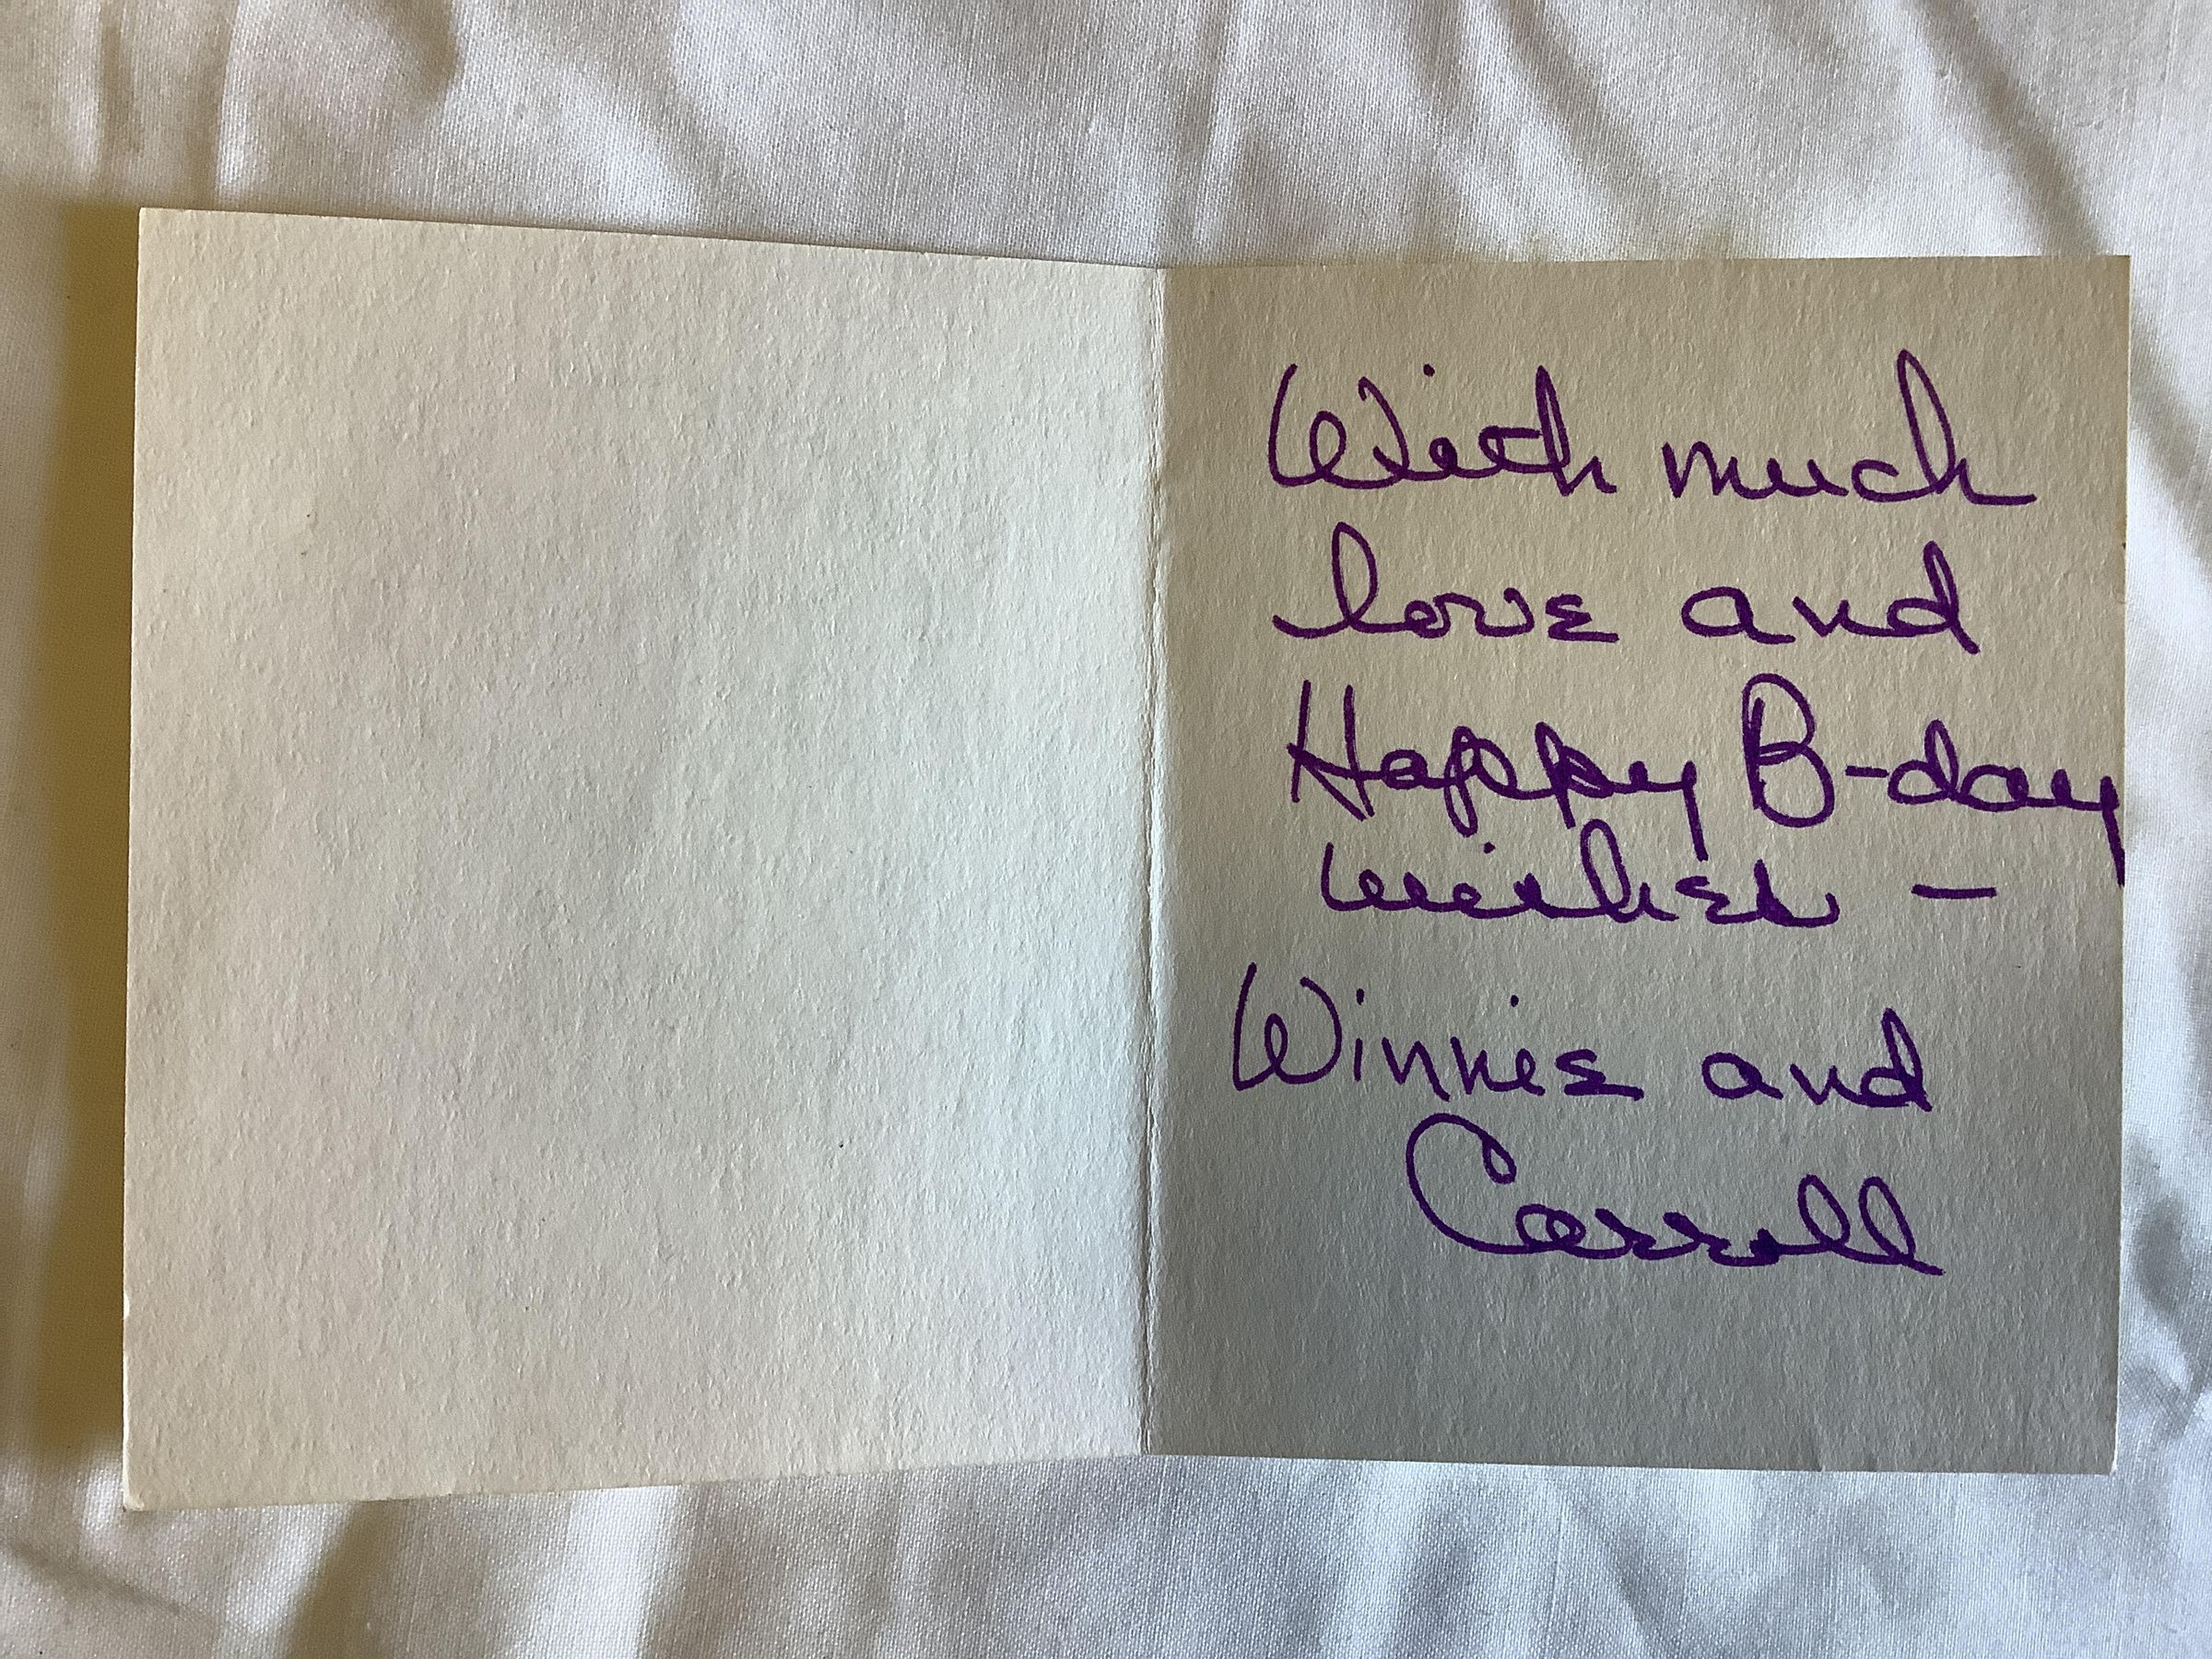 With much
love and
Happy B-day
wishes –
Winnie and
Carroll